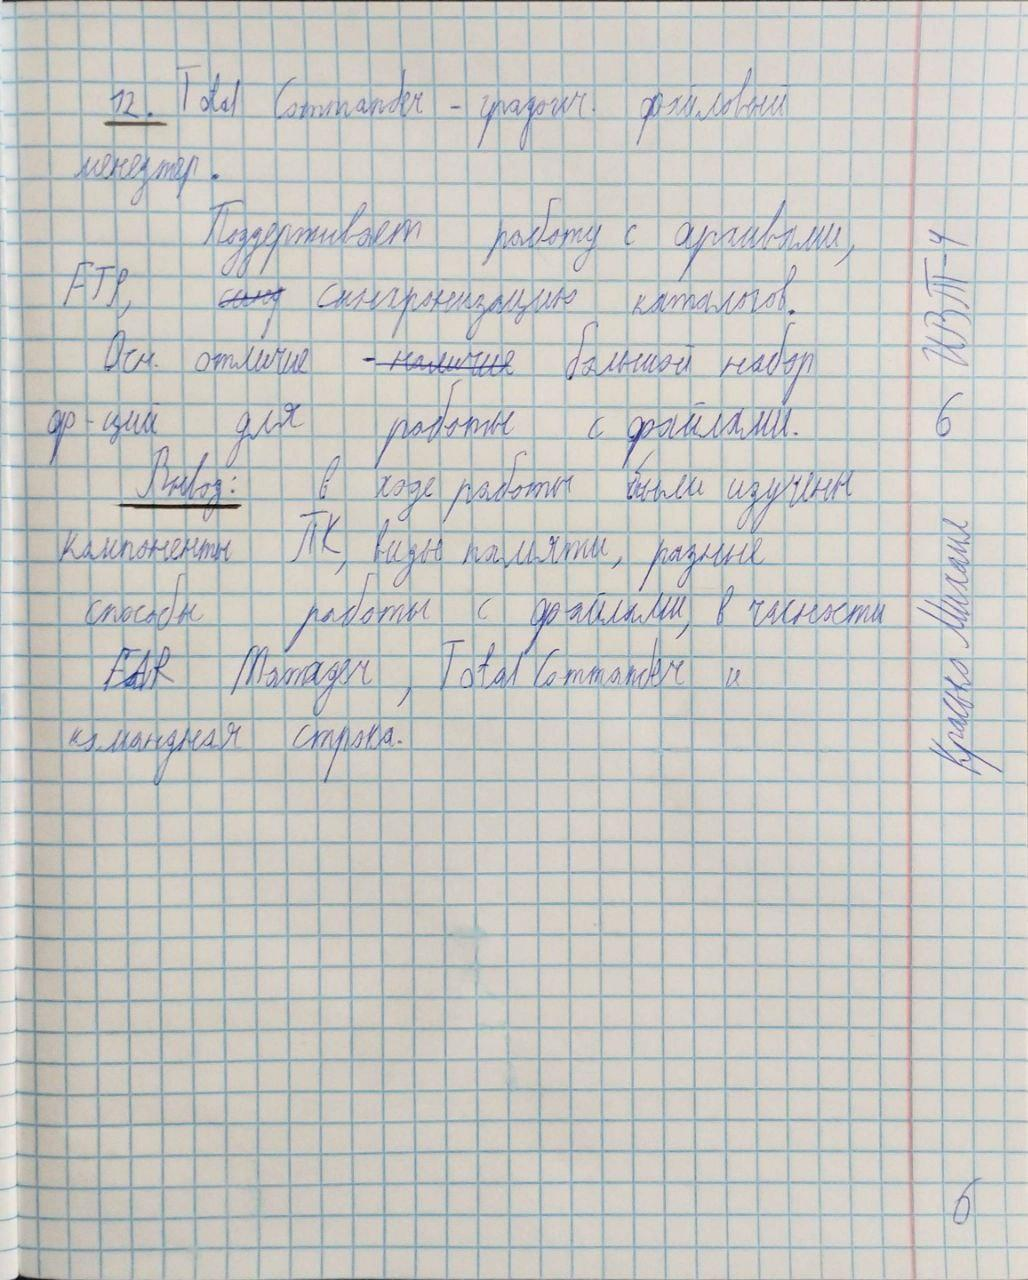 12. Total Commander - графич. файловый
менеджер.
Поддерживает работу с архивами,
FTP, синхронизацию каталогов.
Осн. отличие - наличие большой набор
ф-ций для работы с файлами.
Вывод: в ходе работы были изучены
компоненты ПК, виды памяти, разные
способы работы с файлами, в часности
FAR Manager, Total Commander и
командная строка.
Красько Михаил 6 ИВТ-4
6